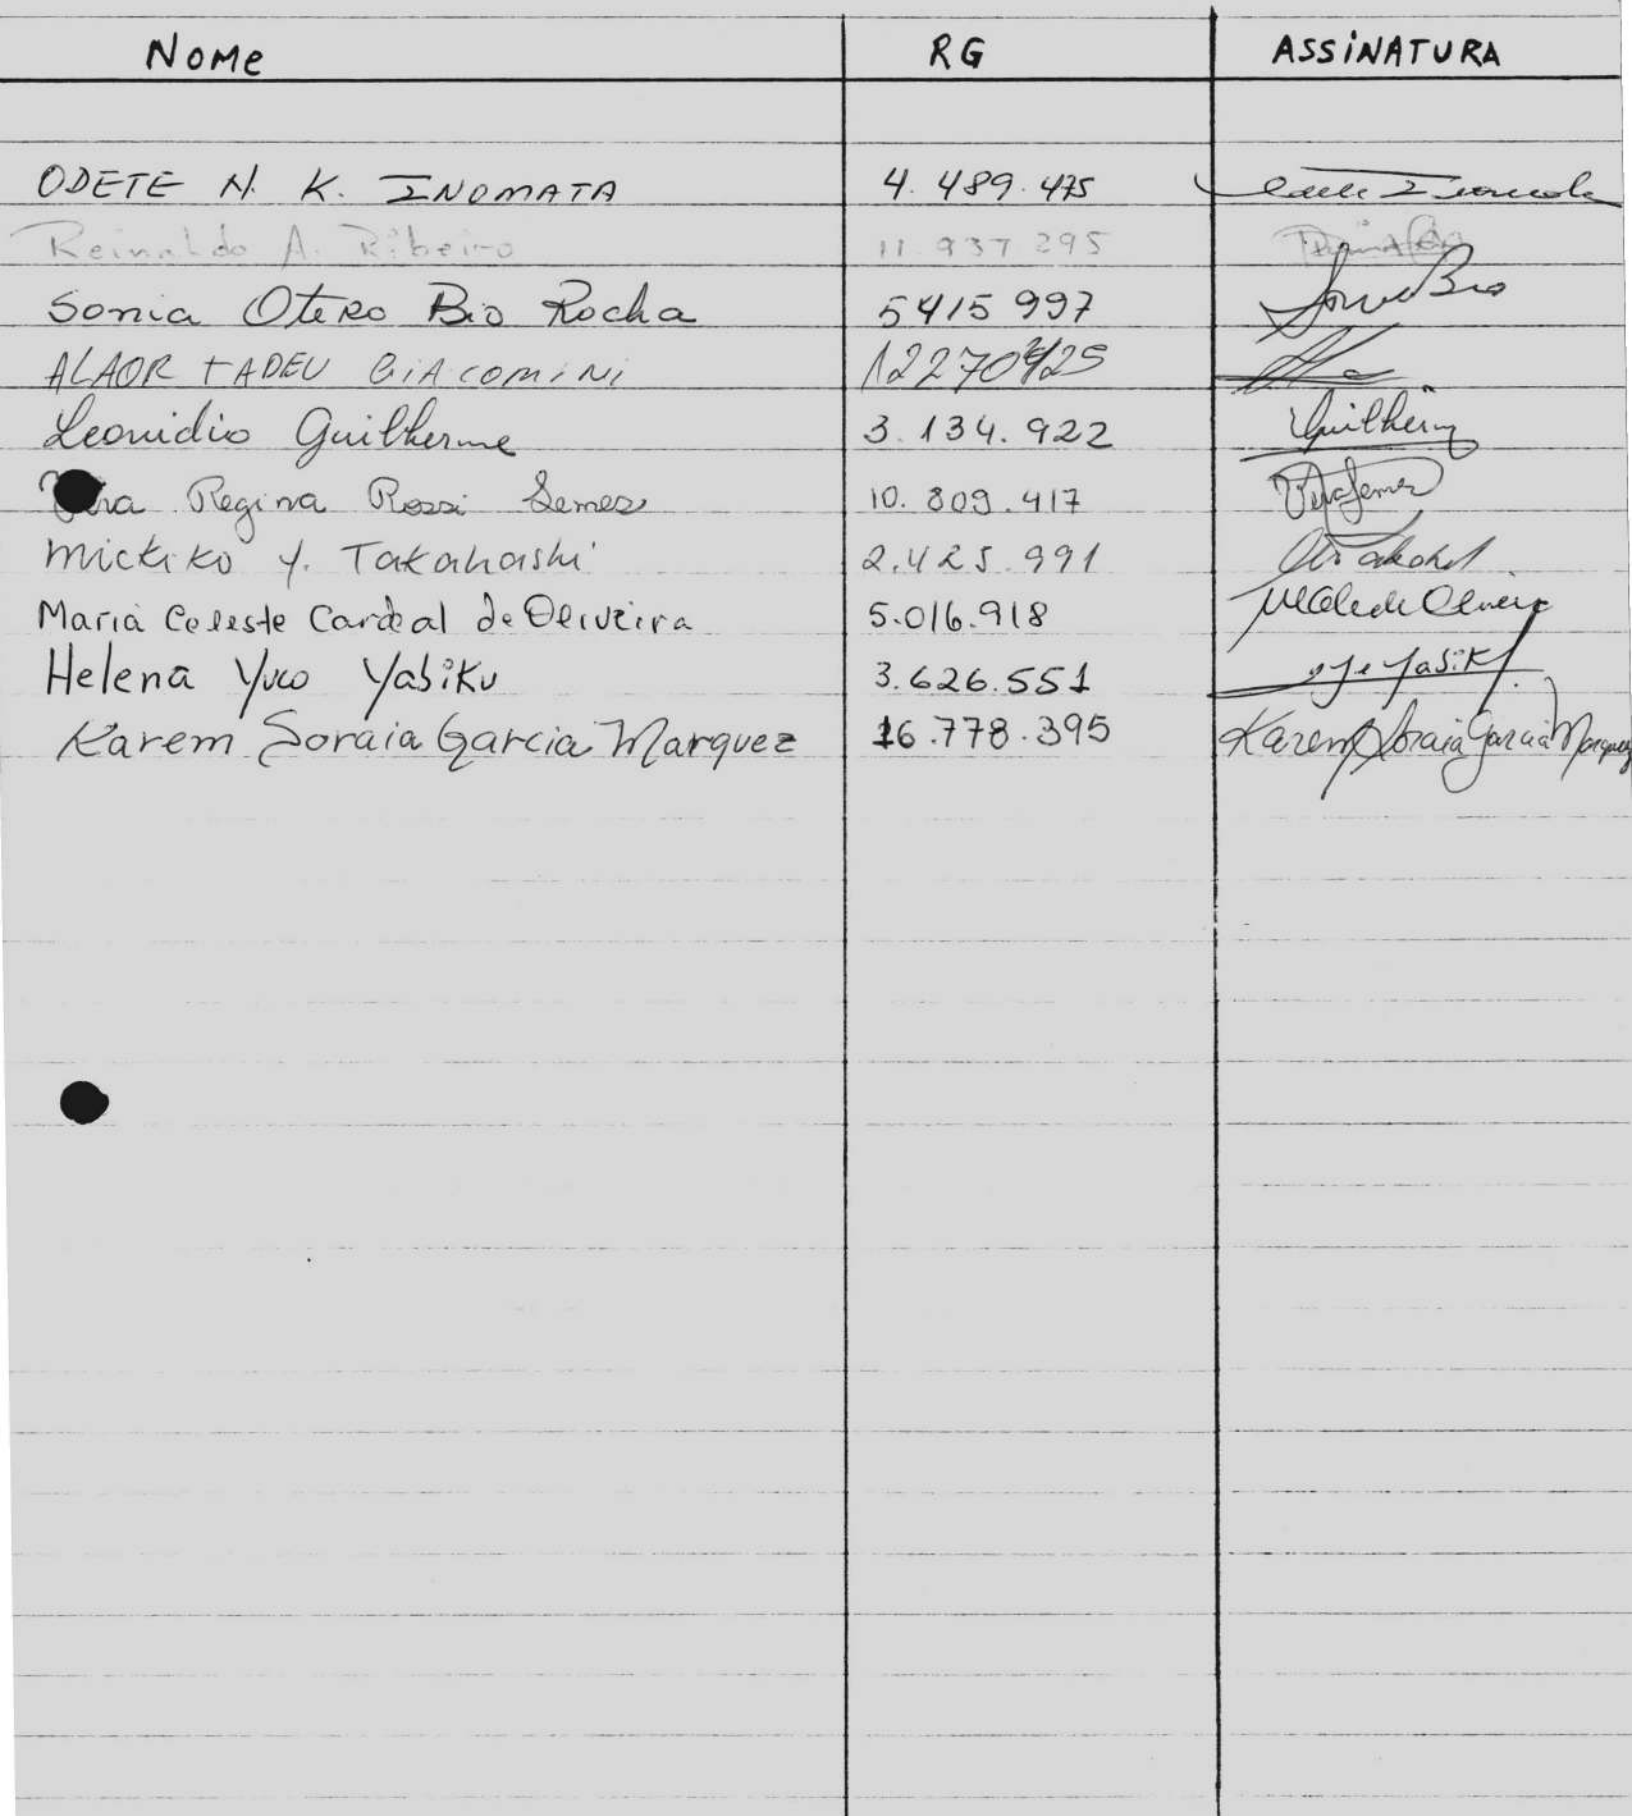 NOMe RG ASSiNATURA
ODETE N. K. INOMATA 4.489.475
Reinaldo A. Ribeiro 11 937 295
Sonia Otero Bio Rocha 5415 997 Sonia Bio
ALAOR TADEU GiACOMiNi
Leonidio Guilherme 3.134.922 Guilherme
Regina Rossi Lemes 10.809.417 Vera Lemes
Michiko Y. Takahashi 2.425.991
Maria Celeste Cardeal de Oliveira 5.016.918
Helena Yuco Yabiku 3.626.551 Yabiku
Karem Soraia Garcia Marquez 16.778.395 Karem Soraia Garcia Marquez